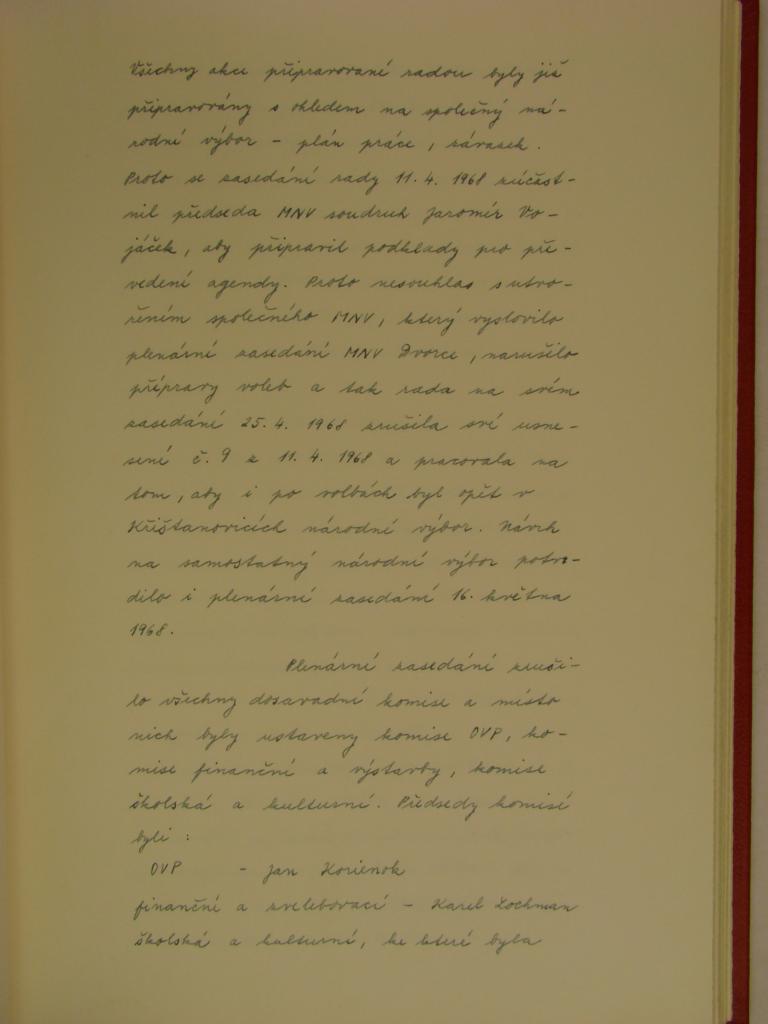 Všechny akce připravované radou byly již
připravovány s ohledem na společný ná-
rodní výbor - plán práce, závazek.
Proto se zasedání rady 11. 4. 1968 zúčast-
nil předseda MNV soudruh Jaromír Vo-
jáček, aby připravil podklady pro pře-
vedení agendy. Proto nesouhlas s utvo-
řením společného MNV, který vyslovilo
plenární zasedání MNV Dvorce, narušilo
přípravy voleb a tak rada na svém
zasedání 25. 4. 1968 zrušila své usne-
sení č. 9 z 11. 4. 1968 a pracovala na
tom, aby i po volbách byl opět v
Křišťanovicích národní výbor. Návrh
na samostatný národní výbor potvr-
dilo i plenární zasedání 16. května
1968.
Plenární zasedání zruši-
lo všechny dosavadní komise a místo
nich byly ustaveny komise OVP, ko-
mise finanční a výstavby, komise
školská a kulturní. Předsedy komisí
byli :
OVP - Jan Korienok
finanční a zvelebovací - Karel Lochman
školská a kulturní, ke které byla